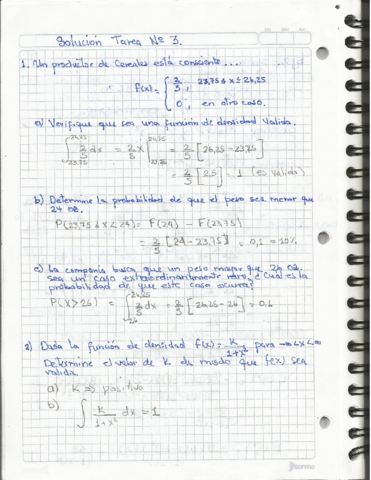 Solución Tarea Nº 3.
1. Un productor de Cereales está consciente...
f(x) = { 2/5 , 23,75 ≤ x ≤ 26,25
0 , en otro caso.
a) Verifique que sea una función de densidad valida.
∫_{23,75}^{26,25} 2/5 dx = 2/5 x |_{23,75}^{26,25} = 2/5 [26,25 - 23,75]
= 2/5 [2.5] = 1 (es valida)
b) Determine la probabilidad de que el peso sea menor que
24 oz.
P(23,75 ≤ x < 24) = F(24) - F(23,75)
= 2/5 [24 - 23,75] = 0,1 = 10%
c) La compañia busca que un peso mayor que 26 oz.
sea un caso extraordinariamente raro, ¿Cuál es la
probabilidad de que este caso ocurra?
P(X>26) = ∫_{26}^{26,25} 2/5 dx = 2/5 [26,25 - 26] = 0,1
2) Dada la función de densidad f(x) = k/1+x² para -∞<x<∞
Determine el valor de k de modo que f(x) sea
valida.
a) k ⇒ positivo
b) ∫ k/1+x² dx = 1
norma